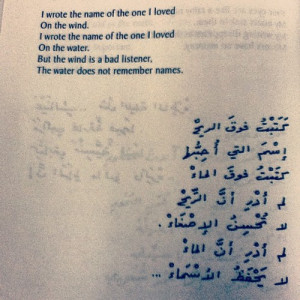 I wrote the name of the one I loved
On the wind.
I wrote the name of the one I loved
On the water.
But the wind is a bad listener,
The water does not remember names.
كَتَبْتُ فوقَ الريحْ
إسْمَ التي أُحِبُّها
كتبْتُ فوقَ الماءْ
لم أدْرِ أنَّ الرِّيحْ
لا تُحْسِنُ الإصْغاءْ.
لم أدْرِ أنَّ الماءْ
لا يَحْفَظُ الأسْماءْ...